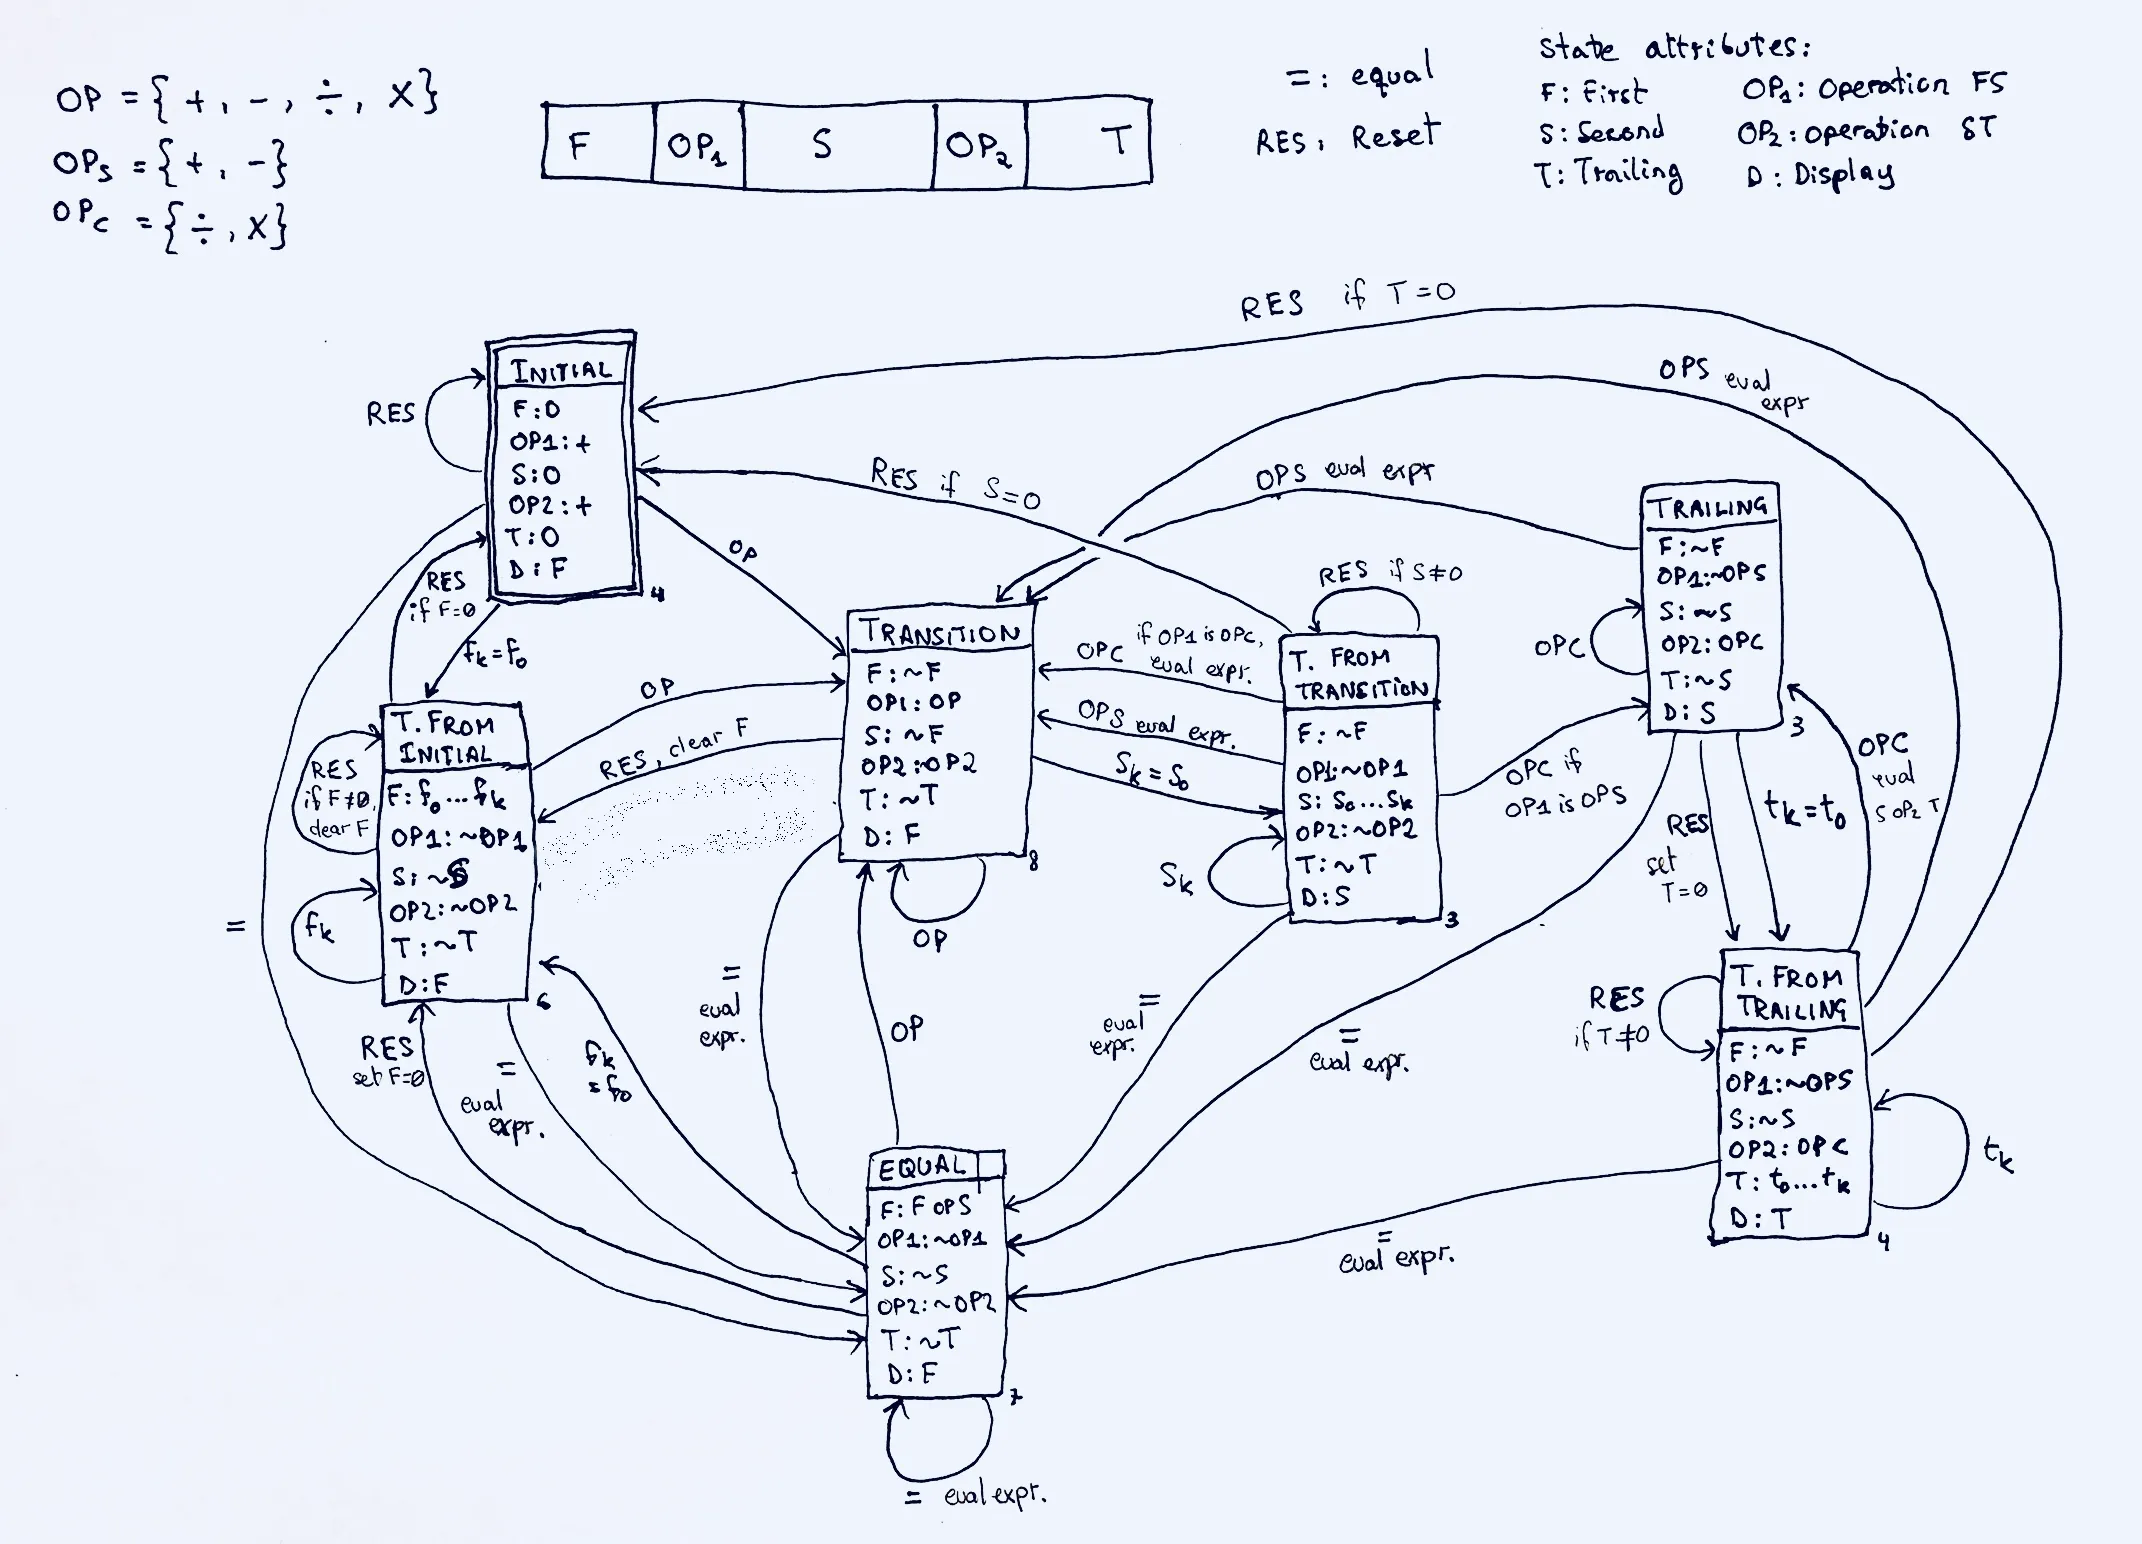 OP = { +, -, ÷, X}
OPs = { +, -}
OPc = { ÷, X}
F OP1 S OP2 T
= : equal
RES: Reset
State attributes:
F: First OP1: Operation FS
S: Second OP2: Operation ST
T: Trailing D: Display
RES if T=0
OPS eval
expr
INITIAL
F:0
OP1:+
S:0
OP2:+
T:0
D:F
4
RES
RES if S=0
OPS eval expr
OP
RES
if F=0
fk=f0
TRAILING
F:~F
OP1:~OPS
S:~S
OP2:OPC
T:~S
D:S
3
OPC
RES if S≠0
TRANSITION
F:~F
OP1:OP
S:~F
OP2:OP2
T:~T
D:F
8
OPC if OP1 is OPC,
eval expr.
OPS eval expr.
Sk=S0
T. FROM
TRANSITION
F:~F
OP1:~OP1
S: S0...Sk
OP2:~OP2
T:~T
D:S
3
Sk
OPC if
OP1 is OPS
OP
RES, clear F
T. FROM
INITIAL
F: f0...fk
OP1:~OP1
S:~S
OP2:~OP2
T:~T
D:F
6
RES
if F≠0,
clear F
fk
=
OP
RES
set
T=0
tk=t0
OPC
eval
S OP2 T
T. FROM
TRAILING
F:~F
OP1:~OPS
S:~S
OP2:OPC
T: t0...tk
D:T
4
RES
if T≠0
tk
RES
set F=0
=
eval
expr.
fk
=f0
=
eval
expr.
OP
=
eval
expr.
=
eval expr.
=
eval expr.
EQUAL
F:F OPS
OP1:~OP1
S:~S
OP2:~OP2
T:~T
D:F
7
= eval expr.